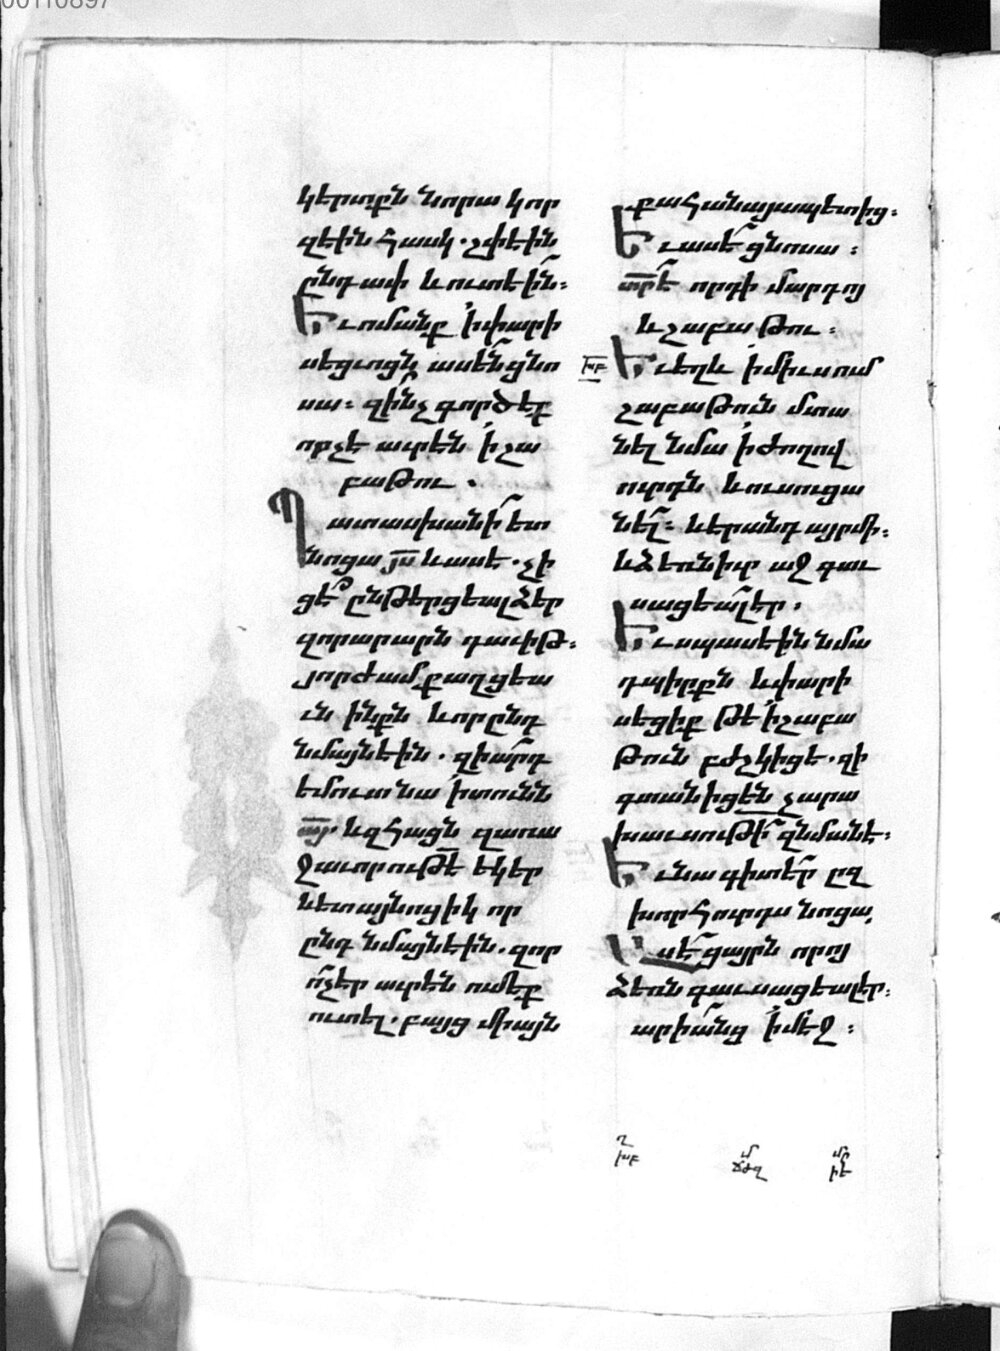 00110897
կերտքն նորա կոր
զէին հասկ. շփէին
ընդ ափ և ուտէին։
Եւ ոմանք ՚ի փարի
սեցւոցն ասեն ցնո
սա։ զի՞նչ գործէք
որ չէ արէն ՚ի շա
բաթու.
Պատասխանի ետ
նոցա յս և ասէ. չի
ցէ՞ ընթերցեալ ձեր
զոր արարն դաւիթ.
յորժամ քաղցեա
ւն ինքն և որ ընդ
նմայն էին. զիա՞րդ
եմուտ նա ՚ի տունն
այ. և զհացն զառա
ջաւորութե եկեր
և ետ այնոցիկ որ
ընդ նմայն էին. զոր
ոչ էր արէն ումէք
ուտել. բայց միայն
քահանայապետից։
Եւ ասէ ցնոսա։
տր է որդի մարդոյ
և շաբաթու։
խբ Եւ եղև ՚ի միւսում
շաբաթուն մտա
նել նմա ՚ի ժողով
ուրդն և ուսուցա
նել։ և էր անդ այր մի.
և ձեռն իւր աջ գաւ
սացեալ էր.
Եւ սպասէին նմա
դպիրքն և փարի
սեցիք թէ ՚ի շաբա
թուն բժշկիցէ. զի
գտանիցեն չարա
խաւսութի զնմանէ։
Եւ նա գիտէր ըզ
խորհուրդս նոցա.
Ասէ ցայրն որոյ
ձեռն գաւսացեալ էր։
արի անց ՚ի մէջ։
ղ
խբ
մ
ճժզ
մր
իե